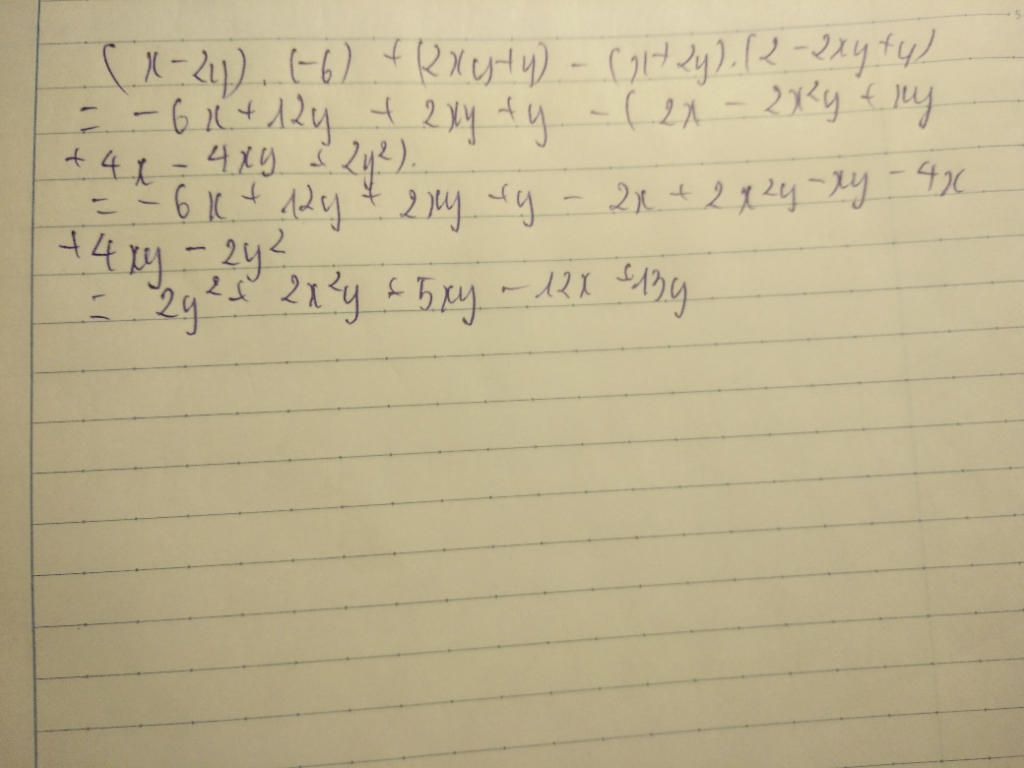 (x-2y).(-6) + (2xy+y) - (x+2y).(2-2xy+y)
= -6x+12y + 2xy+y - (2x - 2x²y + xy
+ 4x - 4xy + 2y²).
= -6x + 12y + 2xy + y - 2x + 2x²y - xy - 4x
+4xy - 2y²
= 2y² + 2x²y + 5xy - 12x + 13y